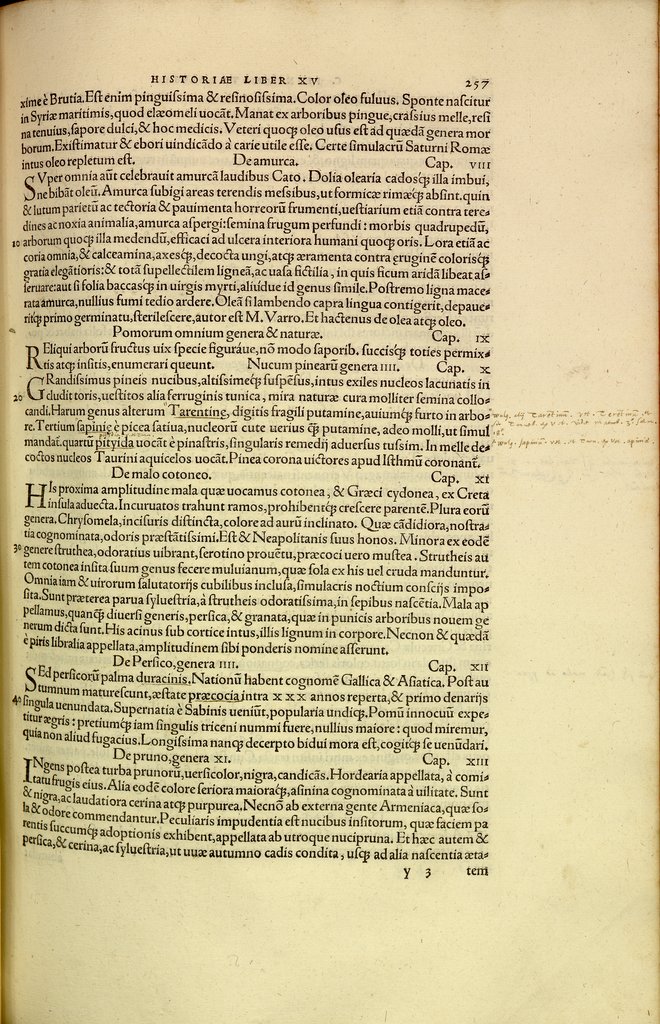 HISTORIAE LIBER XV 257
xime è Brutia. Est enim pinguissima & resinosissima. Color oleo fuluus. Sponte nascitur
in Syriæ maritimis, quod elæomeli uocãt. Manat ex arboribus pingue, crassius melle, resi
na tenuius, sapore dulci, & hoc medicis. Veteri quoqꝫ oleo usus est ad quædã genera mor
borum. Existimatur & ebori uindicãdo à carie utile esse. Certe simulacrũ Saturni Romæ
intus oleo repletum est. De amurca. Cap. VIII
SVper omnia aũt celebrauit amurcã laudibus Cato. Dolia olearia cadosqꝫ illa imbui,
ne bibãt oleũ. Amurca subigi areas terendis messibus, ut formicæ rimæqꝫ absint. quin
& lutum parietũ ac tectoria & pauimenta horreorũ frumenti, uestiarium etiã contra tere-
dines ac noxia animalia, amurca aspergi: semina frugum perfundi: morbis quadrupedũ,
10 arborum quoqꝫ illa medendũ, efficaci ad ulcera interiora humani quoqꝫ oris. Lora etiã ac
coria omnia, & calceamina, axesqꝫ, decocta ungi, atqꝫ æramenta contra ęruginẽ colorisqꝫ
gratia elegãtioris: & totã supellectilem ligneã, ac uasa fictilia, in quis ficum aridã libeat as-
seruare: aut si folia baccasqꝫ in uirgis myrti, aliudue id genus simile. Postremo ligna mace-
rata amurca, nullius fumi tedio ardere. Oleã si lambendo capra lingua contigerit, depaue-
ritqꝫ primo germinatu, sterilescere, autor est M. Varro. Et hactenus de olea atqꝫ oleo.
Pomorum omnium genera & naturæ. Cap. IX
REliqui arborũ fructus uix specie figuráue, nõ modo saporib. succisqꝫ toties permix-
tis atqꝫ insitis, enumerari queunt. Nucum pinearũ genera IIII. Cap. X
GRandissimus pineis nucibus, altissimeqꝫ suspẽsus, intus exiles nucleos lacunatis in
20 cludit toris, uestitos alia ferruginis tunica, mira naturæ cura molliter semina collo-
candi. Harum genus alterum Tarentinę, digitis fragili putamine, auiumqꝫ furto in arbo-
re. Tertium sapinię è picea satiua, nucleorũ cute uerius qꝫ putamine, adeo molli, ut simul
mandat. quartũ pityida uocãt è pinastris, singularis remedij aduersus tussim. In melle de-
coctos nucleos Taurini aquicelos uocãt. Pinea corona uictores apud Isthmũ coronant.
De malo cotoneo. Cap. XI
HIs proxima amplitudine mala quæ uocamus cotonea, & Græci cydonea, ex Creta
insula aduecta. Incuruatos trahunt ramos, prohibentqꝫ crescere parentẽ. Plura eorũ
genera. Chrysomela, incisuris distincta, colore ad aurũ inclinato. Quæ cãdidiora, nostra-
tia cognominata, odoris præstãtissimi. Est & Neapolitanis suus honos. Minora ex eodẽ
30 genere struthea, odoratius uibrant, serotino prouẽtu, præcoci uero mustea. Strutheis au
tem cotonea insita suum genus fecere muluianum, quæ sola ex his uel cruda manduntur.
Omnia iam & uirorum salutatorijs cubilibus inclusa, simulacris noctium conscijs impo-
sita. Sunt præterea parua syluestria, à strutheis odoratissima, in sepibus nascẽtia. Mala ap
pellamus, quanqꝫ diuersi generis, persica, & granata, quæ in punicis arboribus nouem ge
nerum dicta sunt. His acinus sub cortice intus, illis lignum in corpore. Necnon & quædã
è piris libralia appellata, amplitudinem sibi ponderis nomine asserunt.
De Persico, genera IIII. Cap. XII
SEd persicorũ palma duracinis. Nationũ habent cognomẽ Gallica & Asiatica. Post au
tumnum maturescunt, æstate præcocia intra XXX annos reperta, & primo denarijs
40 singula uenundata. Supernatia è Sabinis ueniũt, popularia undiqꝫ. Pomũ innocuũ expe-
titur ægris: pretiumqꝫ iam singulis triceni nummi fuere, nullius maiore: quod miremur,
quia non aliud fugacius. Longissima nanqꝫ decerpto bidui mora est, cogitqꝫ se uenũdari.
De pruno, genera XI. Cap. XIII
INgens postea turba prunorũ, uersicolor, nigra, candicãs. Hordearia appellata, à comi-
tatu frugis eius. Alia eodẽ colore seriora maioraqꝫ, asinina cognominata à uilitate. Sunt
& nigra, ac laudatiora cerina atqꝫ purpurea. Necnõ ab externa gente Armeniaca, quæ so-
la & odore commendantur. Peculiaris impudentia est nucibus insitorum, quæ faciem pa
rentis succumqꝫ adoptionis exhibent, appellata ab utroque nucipruna. Et hæc autem &
persica, & cerina, ac syluestria, ut uuæ autumno cadis condita, usqꝫ ad alia nascentia æta-
y 3 tem